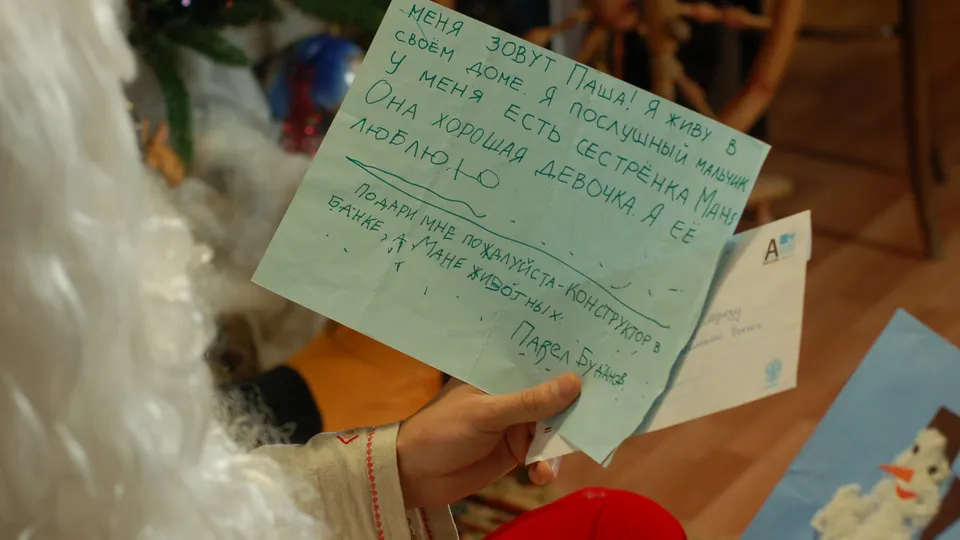 МЕНЯ ЗОВУТ ПАША! Я ЖИВУ В
СВОЁМ ДОМЕ. Я ПОСЛУШНЫЙ МАЛЬЧИК
У МЕНЯ ЕСТЬ СЕСТРЁНКА МАНЯ
ОНА ХОРОШАЯ ДЕВОЧКА. Я ЕЁ
ЛЮБЛЮ.
ПОДАРИ МНЕ ПОЖАЛУЙСТА-КОНСТРУКТОР В
БАНКЕ, А МАНЕ ЖИВОТНЫХ.
ПАВЕЛ БУДАНОВ
А